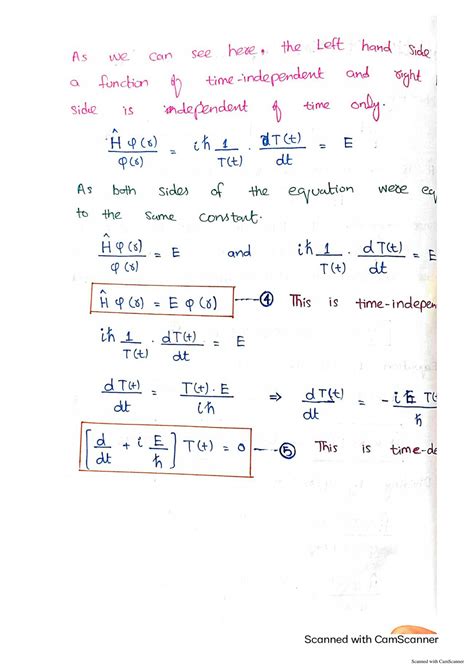 As we can see here, the Left hand side
a function of time-independent and right
side is independent of time only.
Ĥ φ(r) / φ(r) = iℏ 1/T(t) · dT(t)/dt = E
As both sides of the equation were eq
to the same constant.
Ĥ φ(r) / φ(r) = E and iℏ 1/T(t) · dT(t)/dt = E
Ĥ φ(r) = E φ(r) — ④ This is time-indepen
iℏ 1/T(t) · dT(t)/dt = E
dT(t)/dt = T(t)·E / iℏ ⇒ dT(t)/dt = - iE T(t / ℏ
[d/dt + i E/ℏ] T(t) = 0 — ⑤ This is time-de
Scanned with CamScanner
Scanned with CamScanner